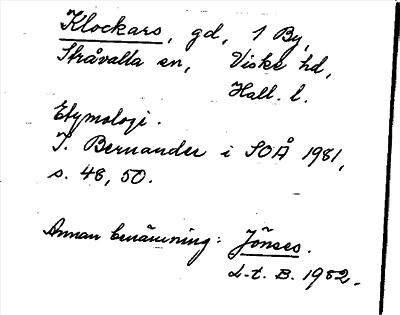 Klockars, gd, 1 By,
Stråvalla sn, Viske hd,
Hall. l.
Etymologi.
I. Bernander i SOÅ 1981,
s. 48, 50.
Annan benämning: Jönses.
L-t. B. 1952.